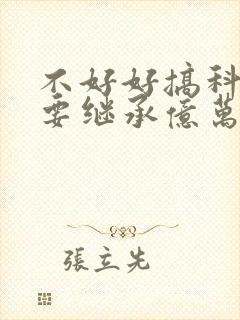 不好好搞科
要继承億萬
張立先